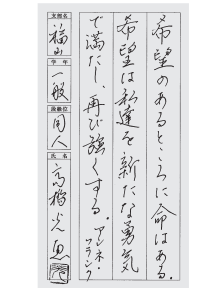 希望のあるところに命はある。
希望は私達を新たな勇気
で満たし、再び強くする。アンネ・フランク
支部名 福山
学年 一般
段級位 同人
氏名 高橋光恵